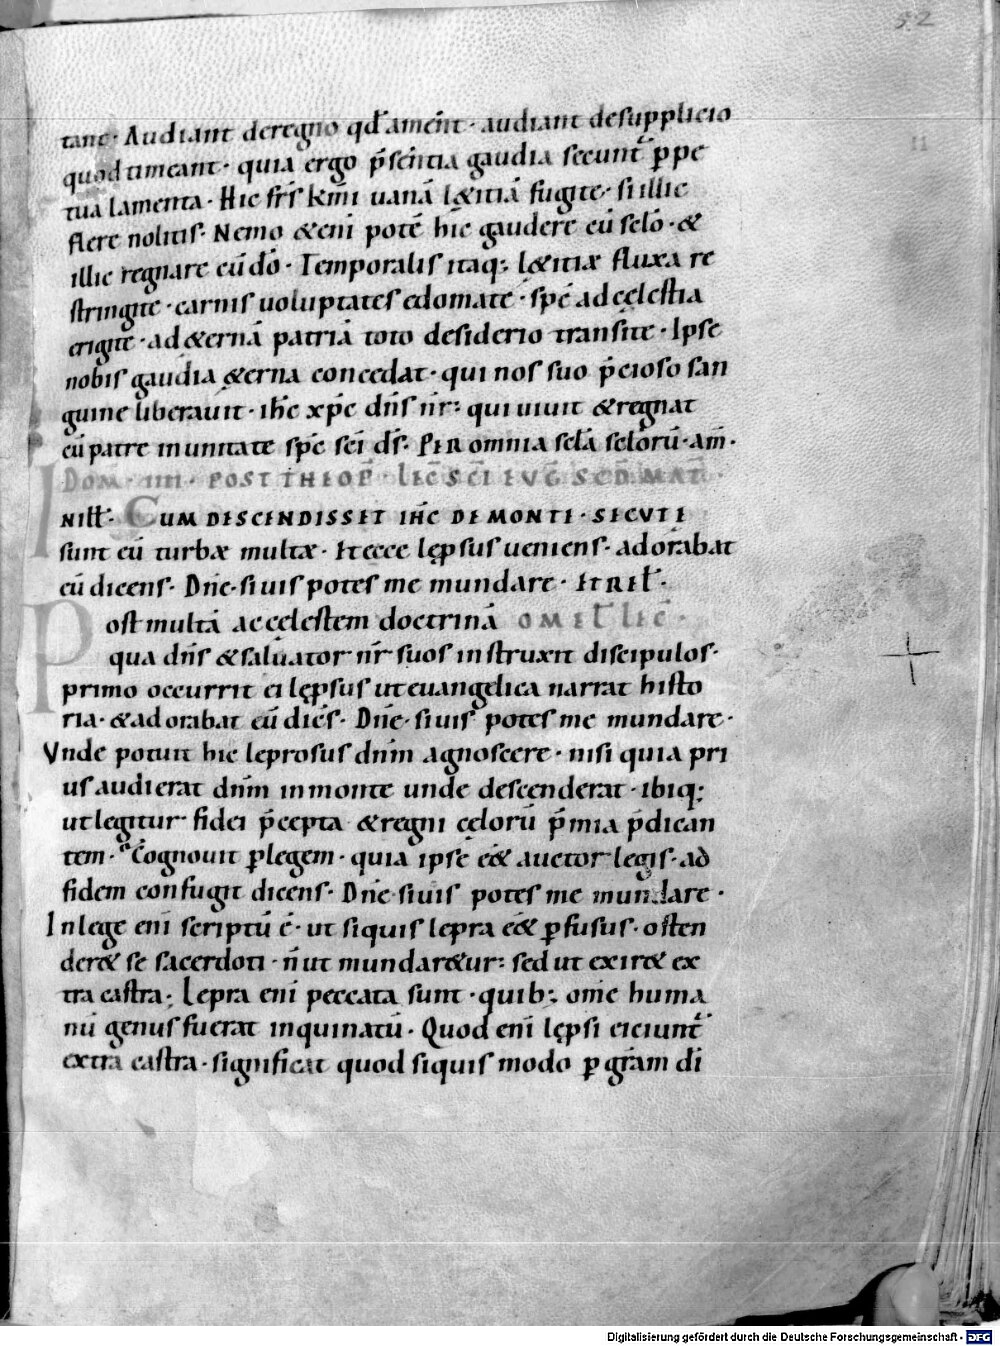 52
tant· Audiant deregno qđ ament· audiant desupplicio
quod timeant· quia ergo p̄sentia gaudia secunt᷑ ꝑpe
tua lamenta· Hic fr̄s km̄i uanā l&itiā fugite· si illic
flere nolitis· Nemo &eni potē hic gaudere cū sclo· &
illic regnare cū dō· Temporalis itaq; l&itiæ fluxa re
stringite· carnis uoluptates edomate· spē ad cęlestia
erigite· ad &ernā patriā toto desiderio transite· Ipse
nobis gaudia &erna concedat· qui nos suo p̄cioso san
guine liberauit· ih̄c xp̄c dn̄s nr̄: qui uiuit & regnat
cū patre in unitate sp̄c sc̄i ds̄· PER omnia scl̄a sclorū· am̄·
DOM̄· IIII· POST THEOPH̄· LEC̄ SC̄I EVḠ SCD̄· MAT̄·
IN ILL̄· CUM DESCENDISSET IHC̄ DE MONTE· SECUTE
sunt eū turbæ multæ· Et ecce lęp̄sus ueniens· adorabat
eū dicens· Dn̄e· si uis potes me mundare· ET REL̄·
Post multā ac cęlestem doctrinā OMEL̄ LEC̄·
qua dn̄s & saluator nr̄ suos instruxit discipulos·
primo occurrit ei lęp̄sus ut euangelica narrat histo
ria· & adorabat eū dicēs· Dn̄e· si uis potes me mundare·
Vnde potuit hic leprosus dn̄m agnoscere· nisi quia pri
us audierat dn̄m in monte unde descenderat· ibiq;
ut legitur fidei p̄cepta & regni cęlorū p̄mia p̄dican
tem· Cognouit ꝑ legem· quia ipse eē& auctor legis· ad
fidem confugit dicens· Dn̄e· si uis potes me mundare·
In lege eni scriptū ē· ut siquis lepra eē& ꝑfusus· osten
der& se sacerdoti· n̄ ut mundar&ur: sed ut exir& ex
tra castra; Lepra eni peccata sunt· quib; om̄e huma
nū genus fuerat inquinatū· Quod eni lęp̄si eiciunt᷑
extra castra· significat quod siquis modo ꝑ gr̄am di
Digitalisierung gefördert durch die Deutsche Forschungsgemeinschaft - DFG